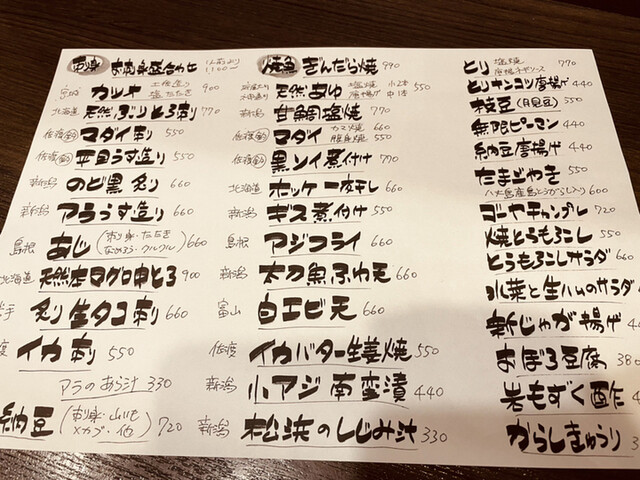 刺身 お刺身盛合わせ 1人前より 1100
宮崎 カツオ 土佐造り 塩たたき 900
北海道 天然ぶりとろ刺 770
佐渡 マダイ刺 550
佐渡 平目うす造り 550
新潟 のど黒炙り 660
新潟 アラうす造り 660
島根 あじ(刺身・たたき なめろう・クルクル) 660
北海道 天然本マグロ中とろ 900
岩手 炙り生タコ刺 660
佐渡 イカ刺 550
アラのあら汁 330
納豆(刺身・山いも メカブ・他) 720
焼魚 ぎんだら焼 990
天然あゆ 塩焼 唐揚げ
新潟 甘鯛塩焼 770
佐渡 マダイ カマ焼 660 腹身焼 550
佐渡 黒ソイ煮付け 770
北海道 ホッケ一夜干し 660
新潟 ギス煮付け 550
島根 アジフライ 660
新潟 太刀魚ふわ天 660
富山 白エビ天 660
佐渡 イカバター生姜焼 550
新潟 小アジ南蛮漬 440
新潟 松浜のしじみ汁 330
とり 塩焼 唐揚チリソース 770
とりナンコツ唐揚げ 440
枝豆(月見豆) 550
無限ピーマン 440
納豆唐揚げ 440
たまごやき 550
八丈島産島とうがらし入り 600
ゴーヤチャンプル 720
焼とうもろこし 550
とうもろこしサラダ 660
水菜と生ハムのサラダ
新じゃが揚げ
おぼろ豆腐 380
岩もずく酢 440
からしきゅうり